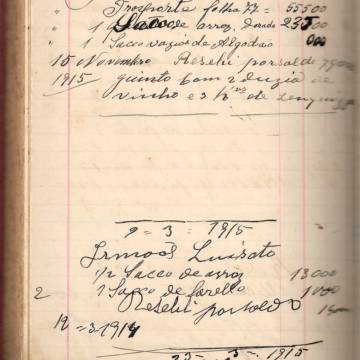 Trasporte folha 77 = 55500
" 1 Sacco de arroz dourado 23500
" 1 Sacco vazio de Algodão 000
15 Novembro Resebi por saldo
1915 quinto com 2 duzia de
vinho e 3 K.os de
2 = 3 = 1915
Irmãos Luisoto
1/2 Sacco de arroz 13000
2 1 Sacco de farello
Resebi por saldo
12 = 3 1914
23 = 3 = 1915